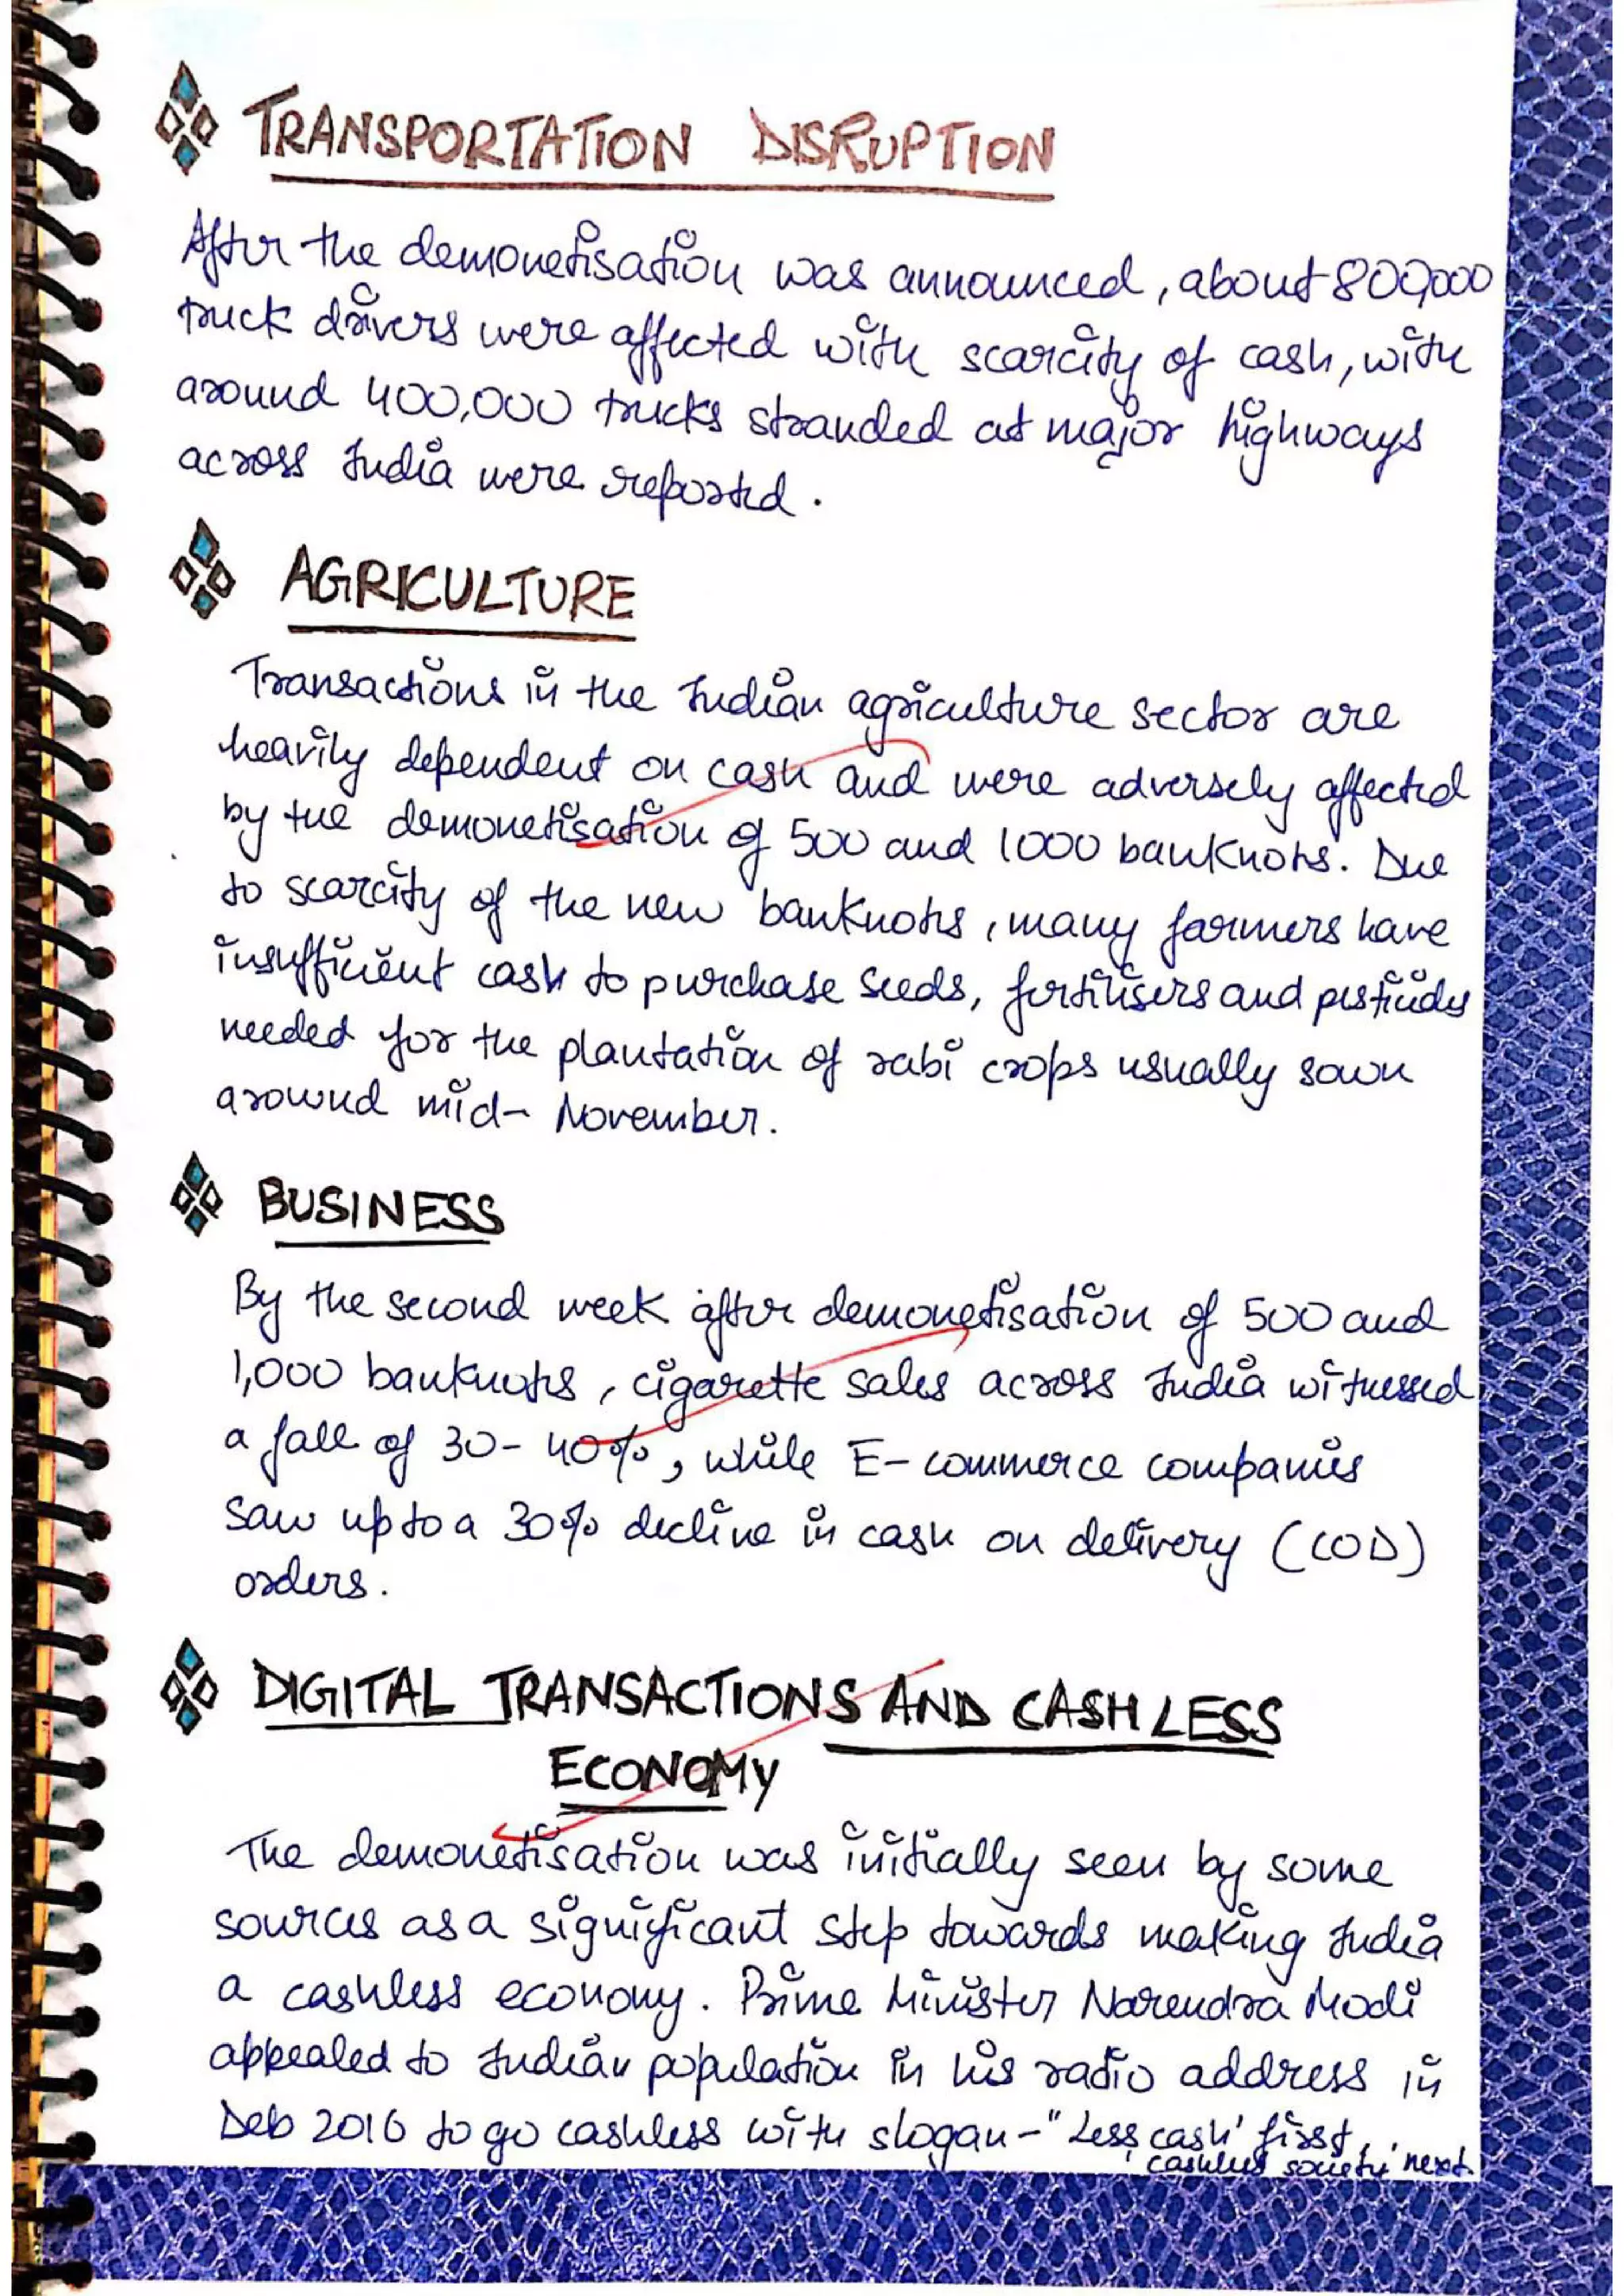 TRANSPORTATION DISRUPTION
After the demonetisation was announced, about 800,000
truck drivers were affected with scarcity of cash, with
around 400,000 trucks stranded at major highways
across India were reported.
AGRICULTURE
Transactions in the Indian agriculture sector are
heavily dependent on cash and were adversely affected
by the demonetisation of 500 and 1000 banknotes. Due
to scarcity of the new banknotes, many farmers have
insufficient cash to purchase seeds, fertilisers and pesticides
needed for the plantation of rabi crops usually sown
around mid- November.
BUSINESS
By the second week after demonetisation of 500 and
1,000 banknotes, cigarette sales across India witnessed
a fall of 30-40%, while E-commerce companies
saw up to a 30% decline in cash on delivery (COD)
orders.
DIGITAL TRANSACTIONS AND CASHLESS
ECONOMY
The demonetisation was initially seen by some
sources as a significant step towards making India
a cashless economy. Prime Minister Narendra Modi
appealed to Indian population in his radio address in
Deb 2016 to go cashless with slogan-"Less cash' first,
'cashless society' next